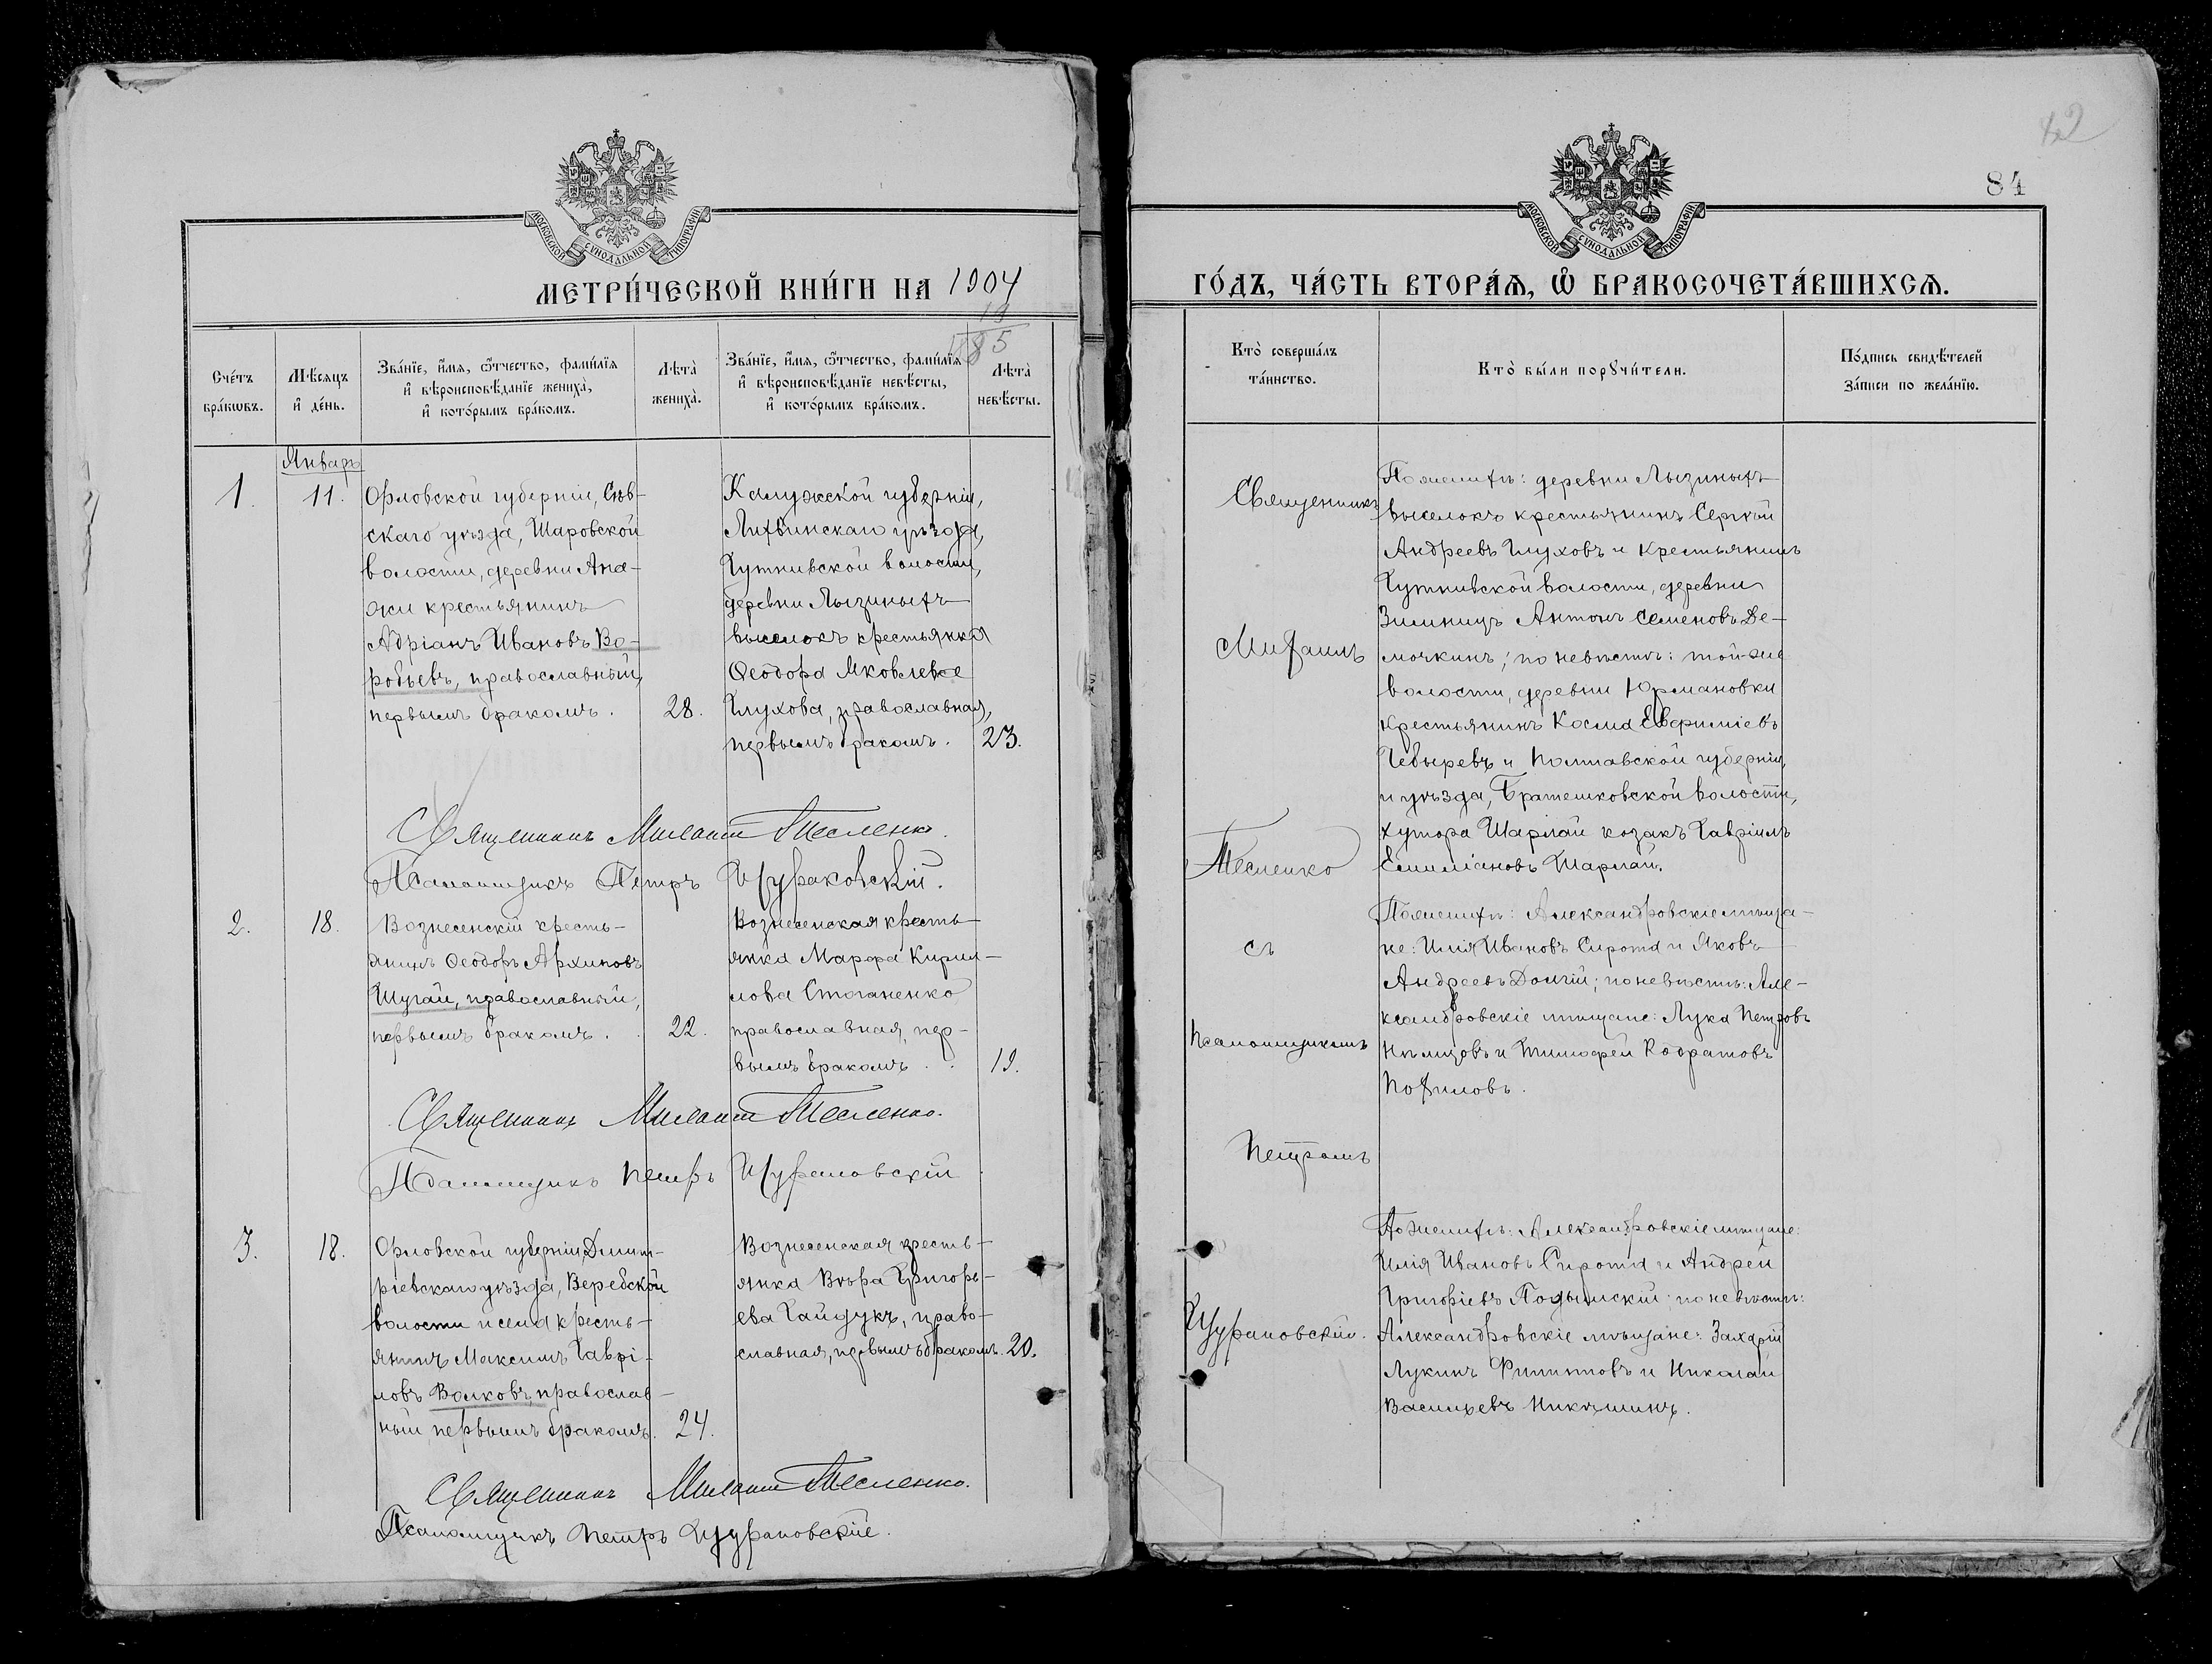 МОСКОВСКОЙ СУНОДАЛЬНОЙ ТИПОГРАФІИ
МЕТРИ́ЧЕСКОЙ КНИ́ГИ НА 1904
Сче́тъ бра́кѡвъ.
Мѣ́сяцъ и҆ де́нь.
Зва́нїе, и҆́мя, ѻ҆́тчество, фами́лїя и҆ вѣроисповѣ́данїе жениха̀, и҆ кото́рымъ бра́комъ.
Лѣта̀ жениха̀.
Зва́нїе, и҆́мя, ѻ҆́тчество, фами́лїя и҆ вѣроисповѣ́данїе невѣ́сты, и҆ кото́рымъ бра́комъ.
Лѣта̀ невѣ́сты.
Январь
1.
11.
Орловской губерніи, Сѣв-
скаго уѣзда, Шаровской
волости, деревни Апа-
жи крестьянинъ
Адріанъ Ивановъ Во-
робьевъ, православный,
первымъ бракомъ.
28.
Калужской губерніи,
Лихвинскаго уѣзда,
волости,
деревни Лызиныхъ
выселокъ крестьянка
Ѳеодора Яковлева
Глухова, православная,
первымъ бракомъ.
23.
Священникъ Михаилъ Тесленко.
Псаломщикъ Петръ Щураковскій.
2.
18.
Вознесенскій кресть-
янинъ Ѳеодоръ Архиповъ
Шугай, православный,
первымъ бракомъ.
22.
Вознесенская кресть-
янка Марѳа Кирил-
лова
православная, пер-
вымъ бракомъ.
19.
Священникъ Михаилъ Тесленко.
Псаломщикъ Петръ Щураковскій
3.
18.
Орловской губерніи, Дмит-
ріевскаго уѣзда, Веребской
волости и села кресть-
янинъ Максимъ Гаврі-
ловъ Волковъ, православ-
ный первымъ бракомъ.
24.
Вознесенская кресть-
янка Вѣра Григорь-
ева Гайдукъ, право-
славная, первымъ бракомъ.
20.
Священникъ Михаилъ Тесленко.
Псаломщикъ Петръ Щураковскій.
84
МОСКОВСКОЙ СУНОДАЛЬНОЙ ТИПОГРАФІИ
ГО́ДЪ, ЧА́СТЬ ВТОРА́Я, Ѡ҆ БРАКОСОЧЕТА́ВШИХСЯ.
Кто̀ соверша́лъ та́инство.
Кто̀ бы́ли порꙋчи́тели.
По́дпись свидѣ́телей за́писи по жела́нїю.
Священникъ
Михаилъ
Тесленко
съ
псаломщикомъ
Петромъ
Щураковскимъ.
По женихѣ: деревни Лызиныхъ
выселокъ крестьянинъ Сергѣй
Андреевъ Глуховъ и крестьянинъ
волости, деревни
Зимницъ Антонъ Семеновъ Де-
мочкинъ; по невѣстѣ: той-же
волости, деревни Юрмановки
крестьянинъ Косма Евфиміевъ
Чевыревъ и Полтавской губерніи
и уѣзда, Братешковской волости,
хутора Шарлай козакъ Гавріилъ
Емиліановъ Шарлай.
По женихѣ: Александровскіе мѣща-
не: Илія Ивановъ Сирота и Яковъ
Андреевъ Долгій; по невѣстѣ: Але-
ксандровскіе мѣщане: Лука Петровъ
Нѣмцовъ и Тимофей Кодратовъ
Пофиловъ.
По женихѣ: Александровскіе мѣщане:
Илія Ивановъ Сирота и Андрей
Григоріевъ Подымскій; по невѣстѣ:
Александровскіе мѣщане: Захарій
Лукинъ Филипповъ и Николай
Васильевъ Никишинъ.